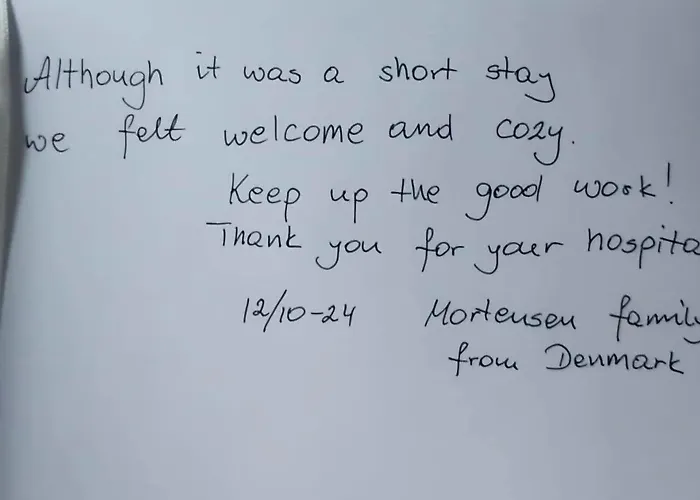 Although it was a short stay
we felt welcome and cozy.
Keep up the good work!
Thank you for your hospita
12/10-24 Mortensen family
from Denmark